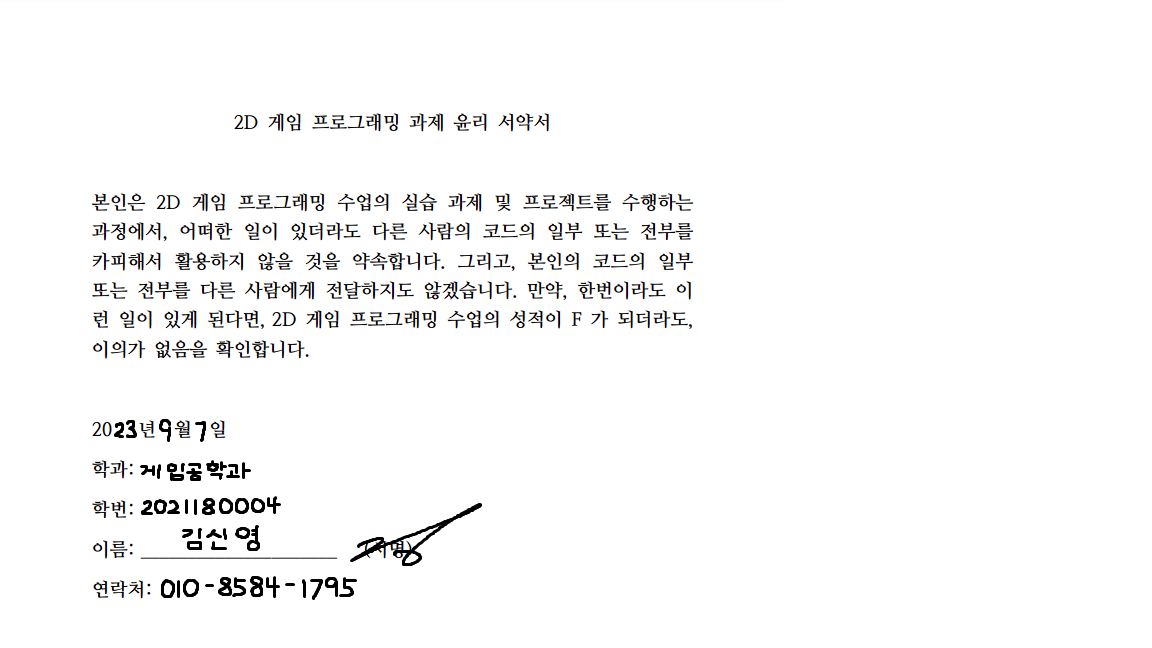 2D 게임 프로그래밍 과제 윤리 서약서
본인은 2D 게임 프로그래밍 수업의 실습 과제 및 프로젝트를 수행하는
과정에서, 어떠한 일이 있더라도 다른 사람의 코드의 일부 또는 전부를
카피해서 활용하지 않을 것을 약속합니다. 그리고, 본인의 코드의 일부
또는 전부를 다른 사람에게 전달하지도 않겠습니다. 만약, 한번이라도 이
런 일이 있게 된다면, 2D 게임 프로그래밍 수업의 성적이 F 가 되더라도,
이의가 없음을 확인합니다.
2023년 9월 7일
학과: 게임공학과
학번: 2021180004
이름: 김신영 (서명)
연락처: 010-8584-1795